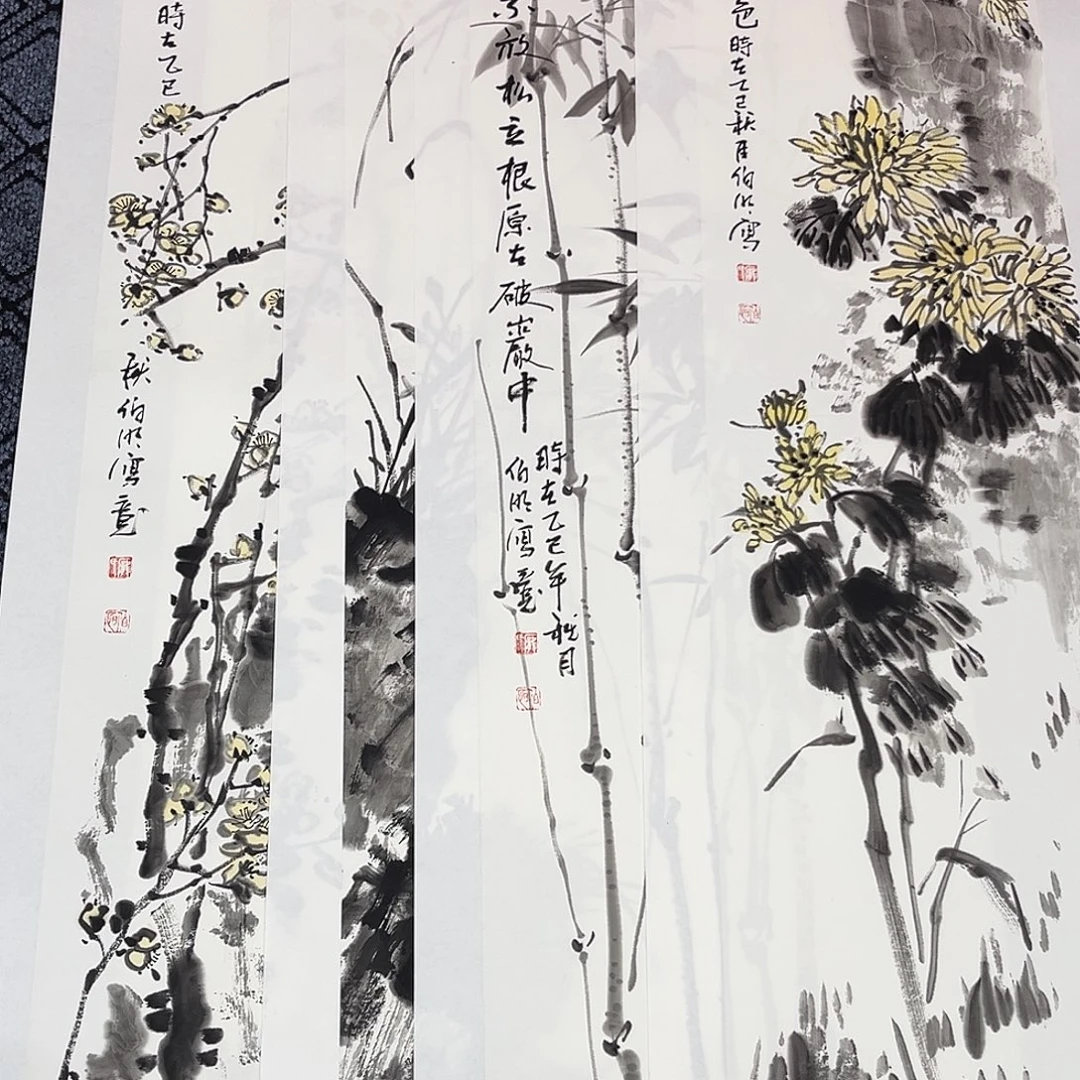 色時在乙巳秋月伯明寫
不放松立根原在破巖中
時在乙巳年秋月
伯明寫意
時在乙巳
秋伯明寫意